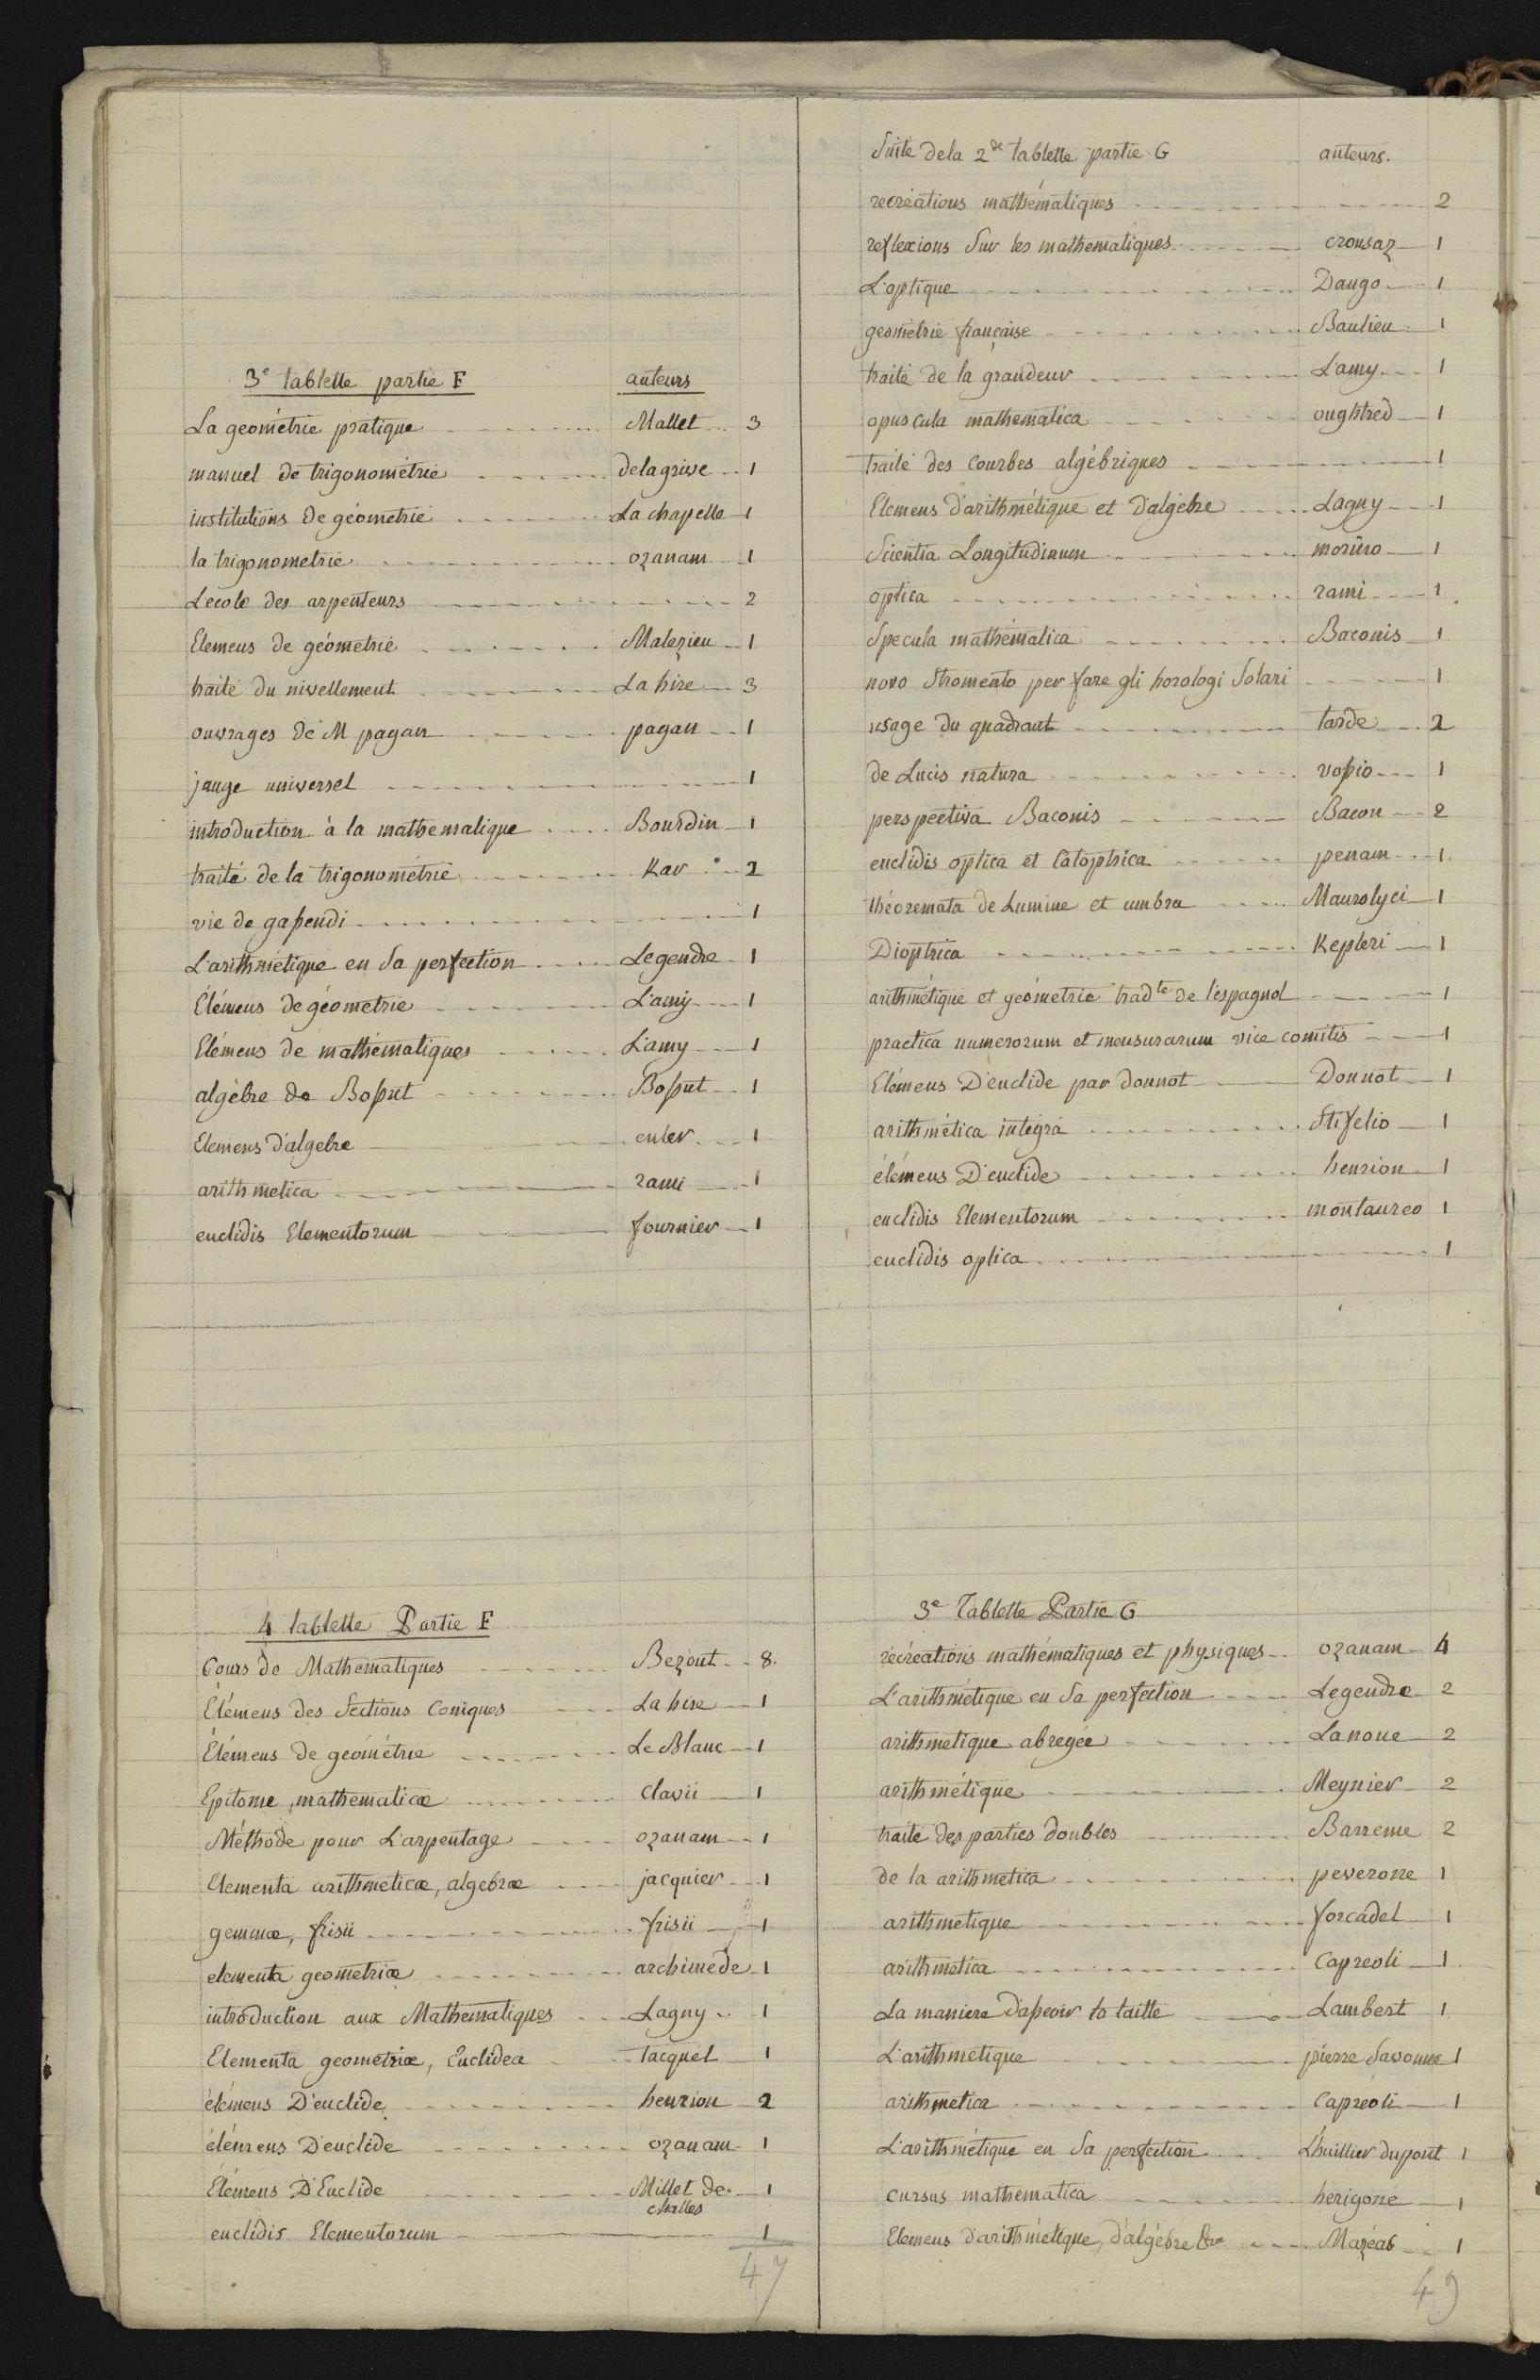 3e tablette partie F auteurs
La geométrie pratique Mallet 3
manuel de trigonométrie delagrive 1
institutions de géometrie La chapelle 1
la trigonometrie ozanam 1
L'ecole des arpenteurs 2
Elemens de géometrie Malezieu 1
traité du nivellement La hire 3
ouvrages de M pagan pagan 1
jauge universel 1
introduction à la mathematique Bourdin 1
traité de la trigonométrie Kav 2
vie de gassendi 1
L'arithmétique en Sa perfection Legendre 1
Elémens de géometrie L'amy 1
Elémens de mathématiques L'amy 1
algébre de Bossut Bossut 1
Elemens d'algebre euler 1
arithmetica rami 1
euclidis Elementorum fournier 1
4 tablette Partie F
Cours de Mathematiques Bezout 8.
Elémens des Sections Coniques La hire 1
Elémens de geométrie Le Blanc 1
Epitome mathematicæ Clavii 1
Méthode pour L'arpentage ozanam 1
Elementa arithmeticæ, algebræ jacquier 1
gemmæ, frisii frisii 1
elementa geometriæ archimede 1
introduction aux Mathematiques Lagny 1
Elementa geometriæ, Euclidea Tacquet 1
élémens D'euclide henrion 2
élémens D'euclide ozanam 1
Elémens D'Euclide Millet de 1
challes
euclidis Elementorum 1
47
Suite de la 2de tablette partie G auteurs.
recréations mathématiques 2
reflexions Sur les mathematiques crousaz 1
L'optique Dango 1
geometrie française Baulieu 1
traité de la grandeur Lamy 1
opuscula mathematica oughtred 1
traité des Courbes algébriques 1
Elemens d'arithmétique et d'algèbre Lagny 1
Scientia Longitudinum morino 1
optica rami 1
Specula mathématica Baconis 1
novo Stromento per fare gli horologi Solari 1
usage du quadrant tarde 2
de Lucis natura vossio 1
perspectiva Baconis Bacon 2
euclidis optica et Catoptrica penam 1
théoremata de Lumine et umbra Maurolyci 1
Dioptrica Kepleri 1
arithmétique et geométrie tradte de l'espagnol 1
practica numerorum et mensurarum vice comitis 1
Elémens D'euclide par donnot Donnot 1
arithmética integra Stifelio 1
élémens D'euclide henrion 1
euclidis Elementorum montaureo 1
euclidis optica 1
3e Tablette Partie G
récréations mathématiques et physiques ozanam 4
L'arithmétique en Sa perfection Legendre 2
arithmetique abregée Lanoue 2
arithmétique Meynier 2
traité des parties doubles Barreme 2
de la arithmetica peverone 1
arithmetique forcadel 1
arithmetica Capreoli 1
La maniere d'asseoir la taille Lambert 1
L'arithmetique pierre Savonne 1
arithmetica Capreoli 1
L'arithmétique en Sa perfection L'huillier dupont 1
cursus mathematica herigone 1
Elemens d'arithmétique, d'algébre &ca Mazéas 1
49